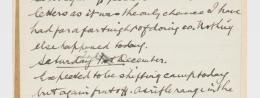 letters as it was the only chance I have
had for a fortnight of doing so. Nothing
else happened today.
Saturday 1st December.
Expected to be shifting camp today
but again put off. a rifle range in the